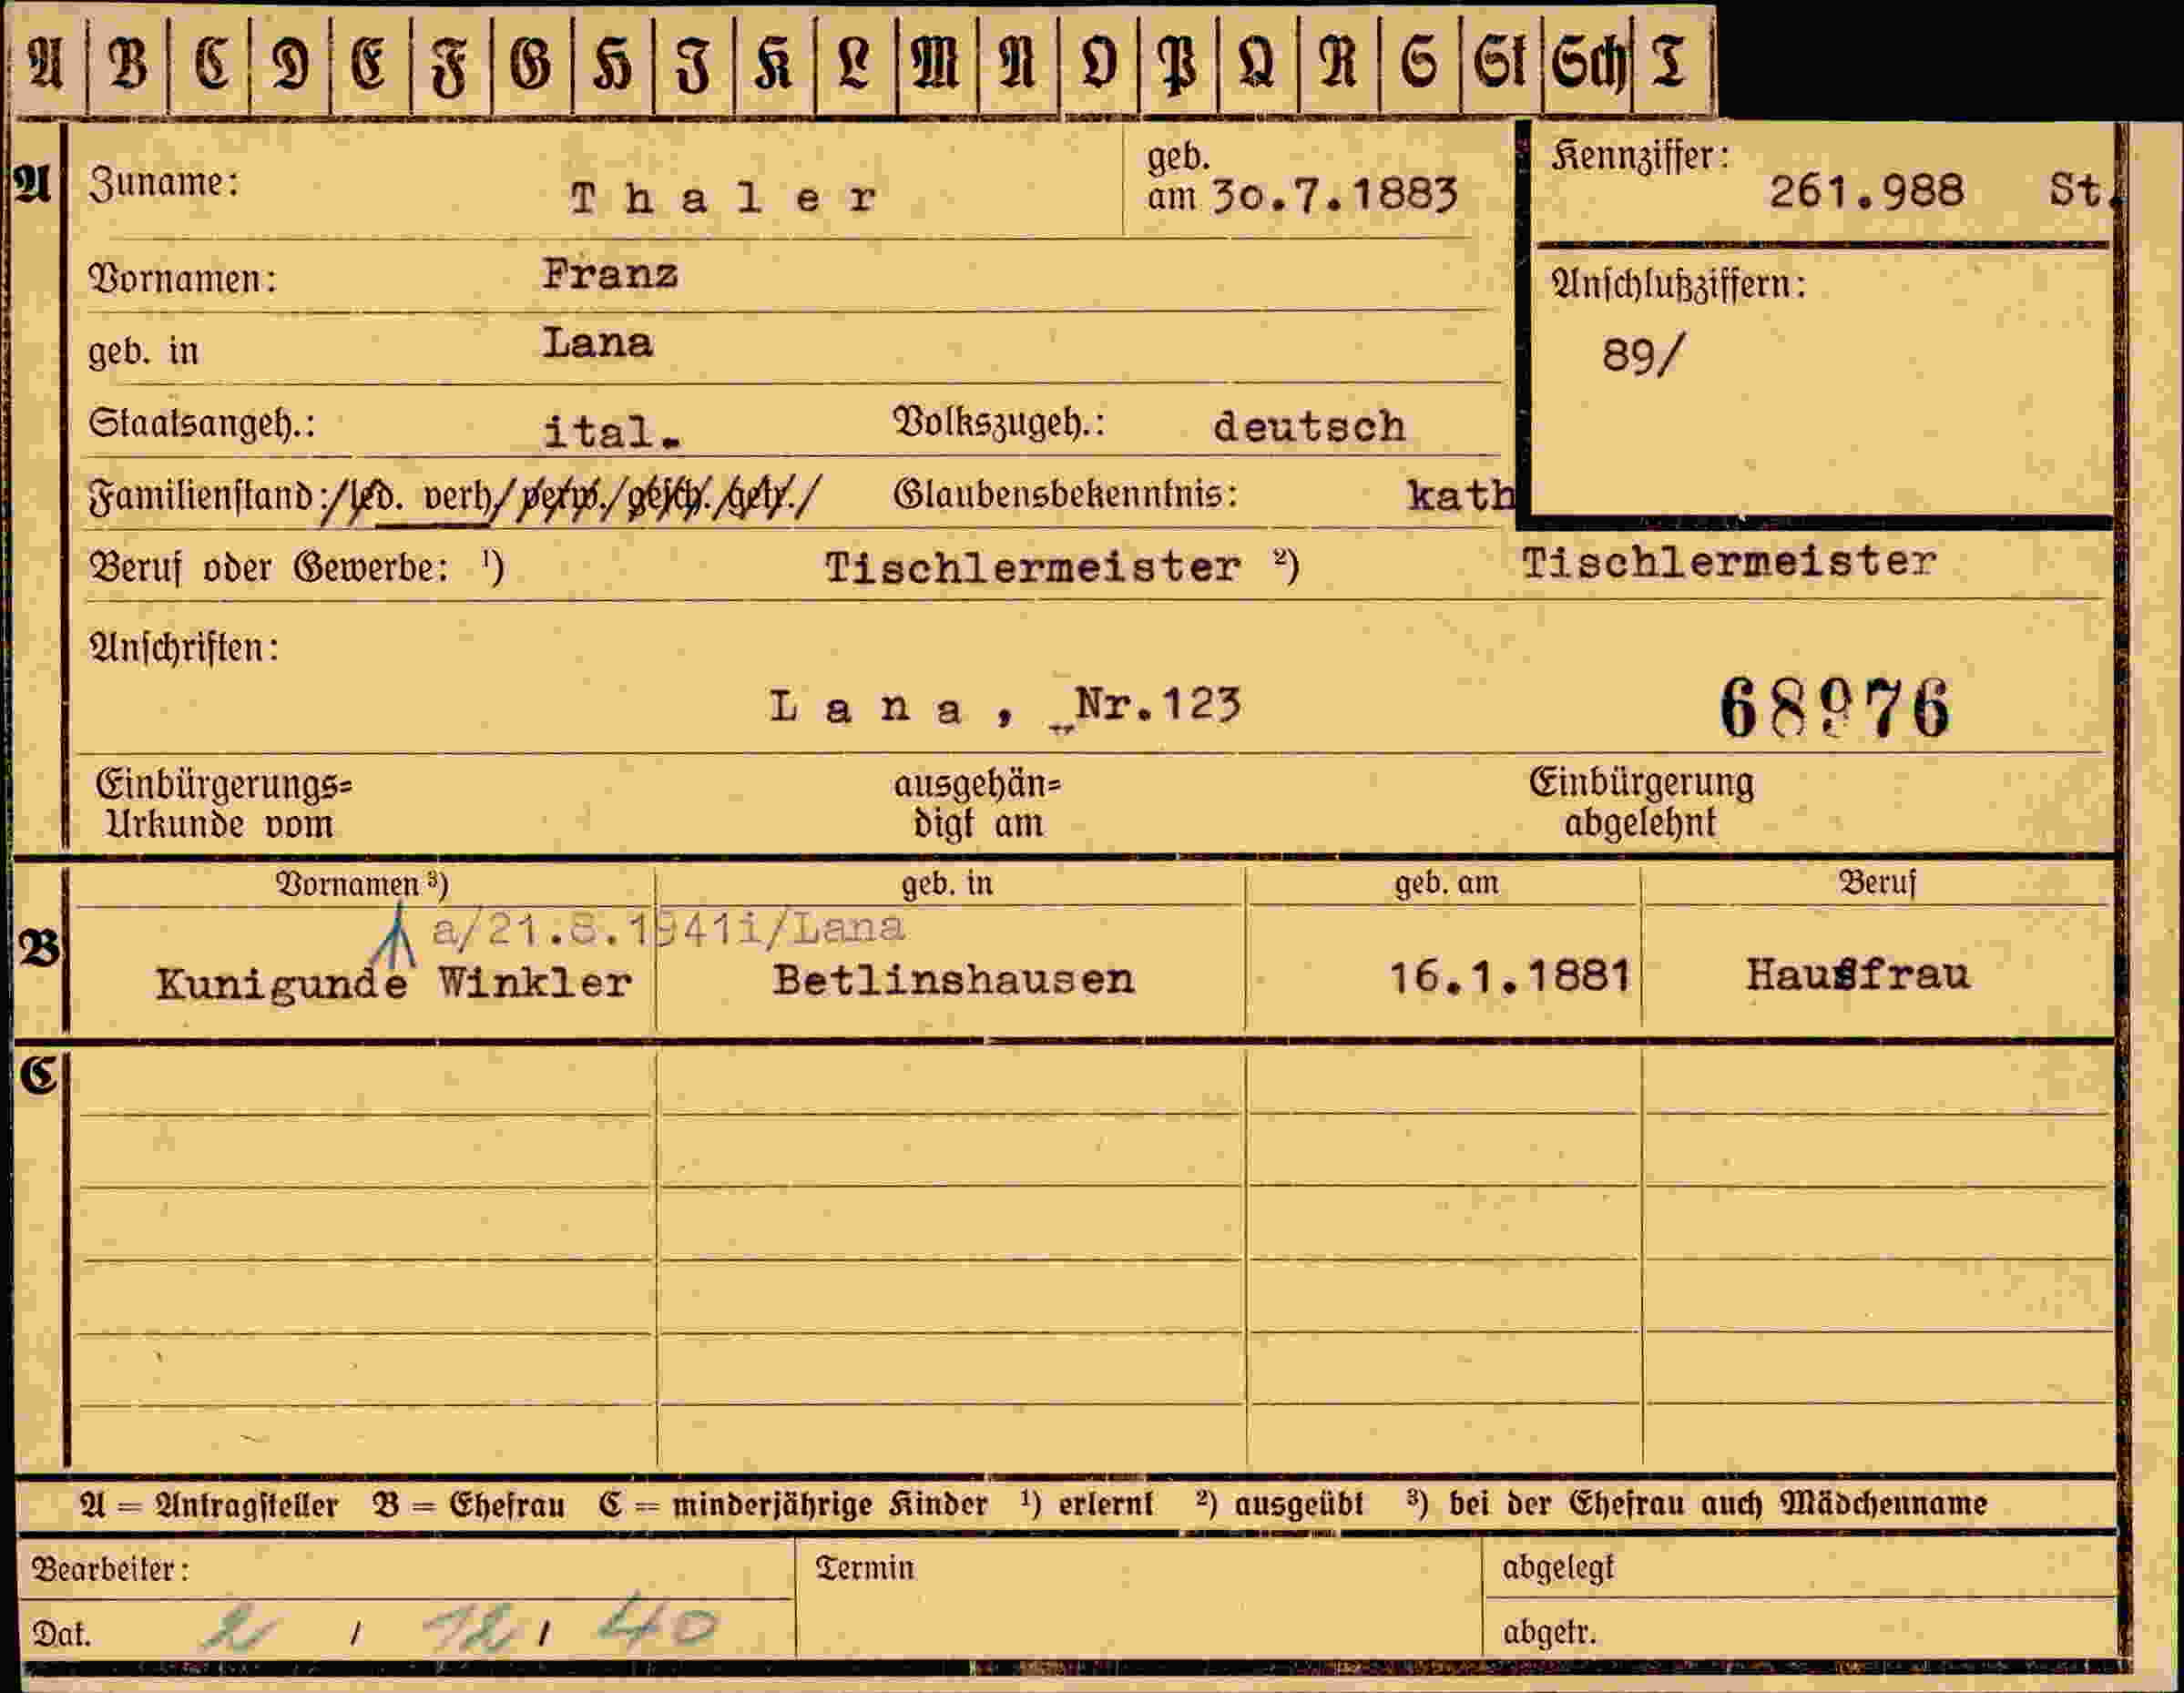 A B C D E F G H I K L M N O P Q R S St Sch T
A Zuname: Thaler geb. am 30.7.1883 Kennziffer: 261.988 St.
Vornamen: Franz
geb. in Lana Anschlußziffern: 89/
Staatsangeh.: ital. Volkszugeh.: deutsch
Familienstand:/led. verh/verw./gesch./getr./ Glaubensbekenntnis: kath
Beruf oder Gewerbe: ¹) Tischlermeister ²) Tischlermeister
Anschriften:
Lana, Nr.123 68976
Einbürgerungs= Urkunde vom ausgehän= digt am Einbürgerung abgelehnt
Vornamen ³) geb. in geb. am Beruf
a/21.8.1941i/Lana
B Kunigunde Winkler Betlinshausen 16.1.1881 Hausfrau
C
A = Antragsteller B = Ehefrau C = minderjährige Kinder ¹) erlernt ²) ausgeübt ³) bei der Ehefrau auch Mädchenname
Bearbeiter: Termin abgelegt
Dat. 2 / 12 / 40 abgetr.